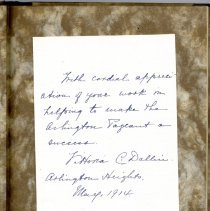 With cordial appreci-
ation of your work in
helping to make the
Arlington Pageant a
success.
Vittoria C. Dallin.
Arlington Heights,
May, 1914